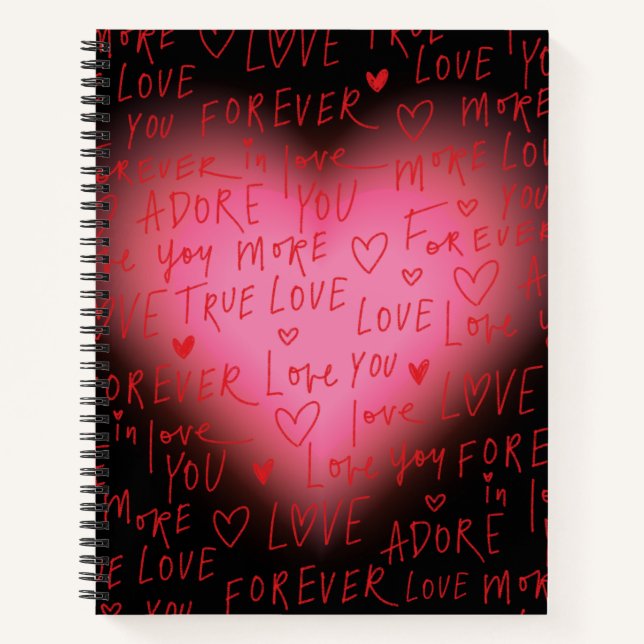 MORE LOVE TRUE LOVE
LOVE LOVE YOU
YOU FOREVER MORE
FOREVER in love MORE LOVE
ADORE YOU YOU
YOU MORE FOREVER
LOVE TRUE LOVE LOVE Love you
FOREVER Love YOU LOVE
in love love
YOU Love you FORE
MORE LOVE ADORE in lo
LOVE FOREVER LOVE MORE
YOU